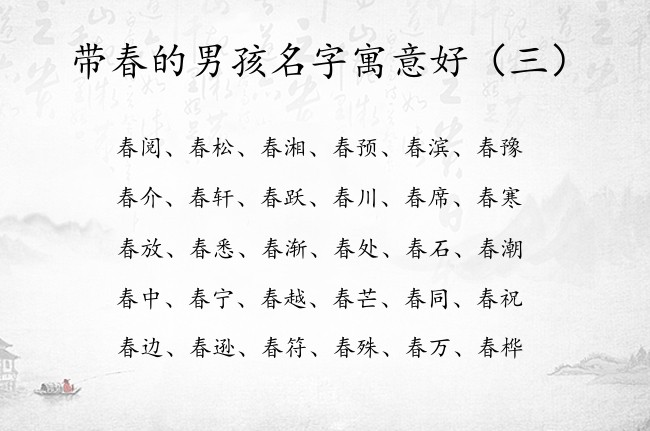 带春的男孩名字寓意好（三）
春阅、春松、春湘、春预、春滨、春豫
春介、春轩、春跃、春川、春席、春寒
春放、春悉、春渐、春处、春石、春潮
春中、春宁、春越、春芒、春同、春祝
春边、春逊、春符、春殊、春万、春桦